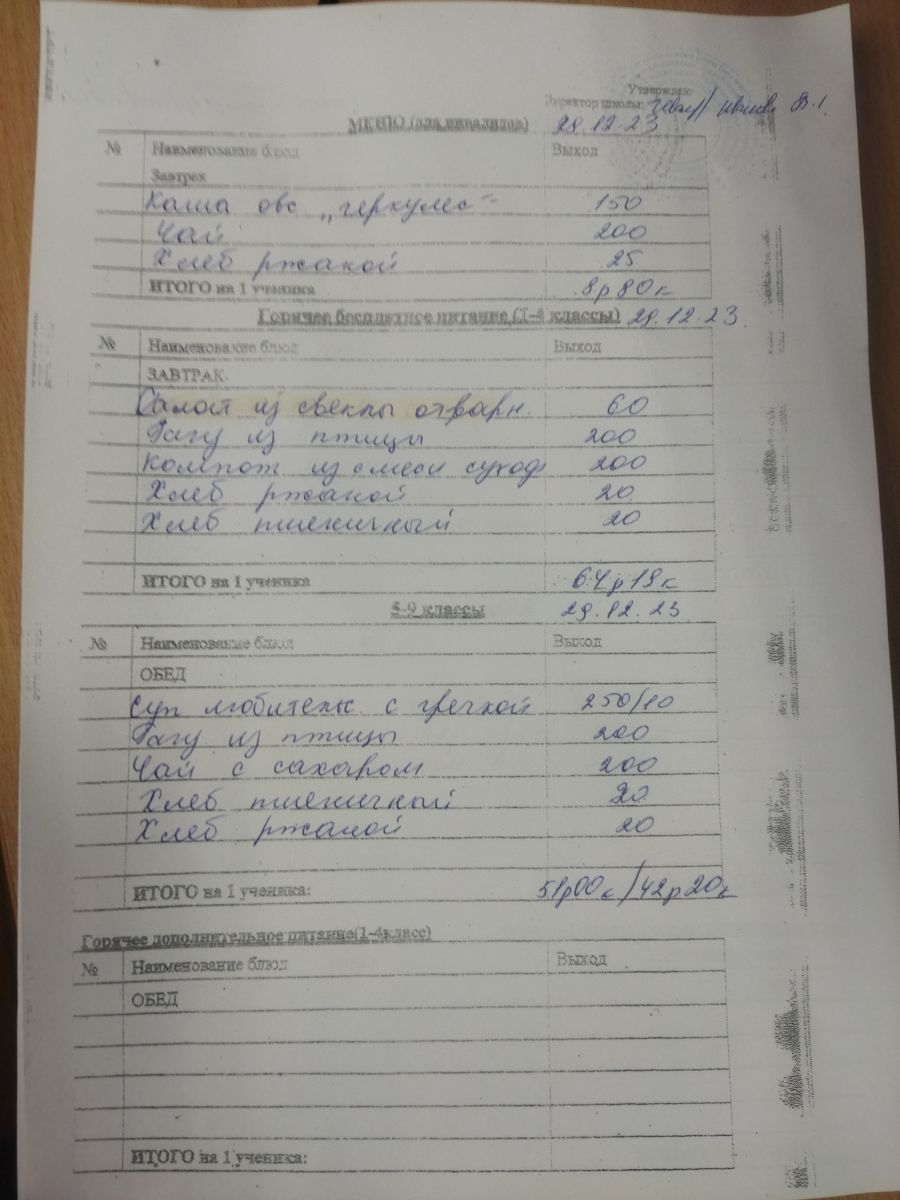 Утверждаю
Директор школы:
МЕНЮ (для инвалидов) 29.12.23
№ Наименование блюд Выход
Завтрак
Каша овс „геркулес" 150
Чай 200
Хлеб ржаной 25
ИТОГО на 1 ученика 8р80к
Горячее бесплатное питание (1-4 классы) 29.12.23
№ Наименование блюд Выход
ЗАВТРАК
Салат из свеклы отварн. 60
Рагу из птицы 200
Компот из смеси сухоф 200
Хлеб ржаной 20
Хлеб пшеничный 20
ИТОГО на 1 ученика 64р19к
5-9 классы 29.12.23
№ Наименование блюд Выход
ОБЕД
Суп любительск. с гречкой 250/10
Рагу из птицы 200
Чай с сахаром 200
Хлеб пшеничный 20
Хлеб ржаной 20
ИТОГО на 1 ученика: 51р00к/42р20к
Горячее дополнительное питание(1-4класс)
№ Наименование блюд Выход
ОБЕД
ИТОГО на 1 ученика: